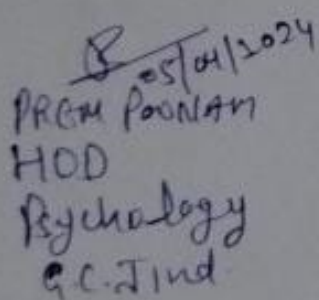 05/04/2024
PREM POONAM
HOD
Psychology
G.C. Jind.